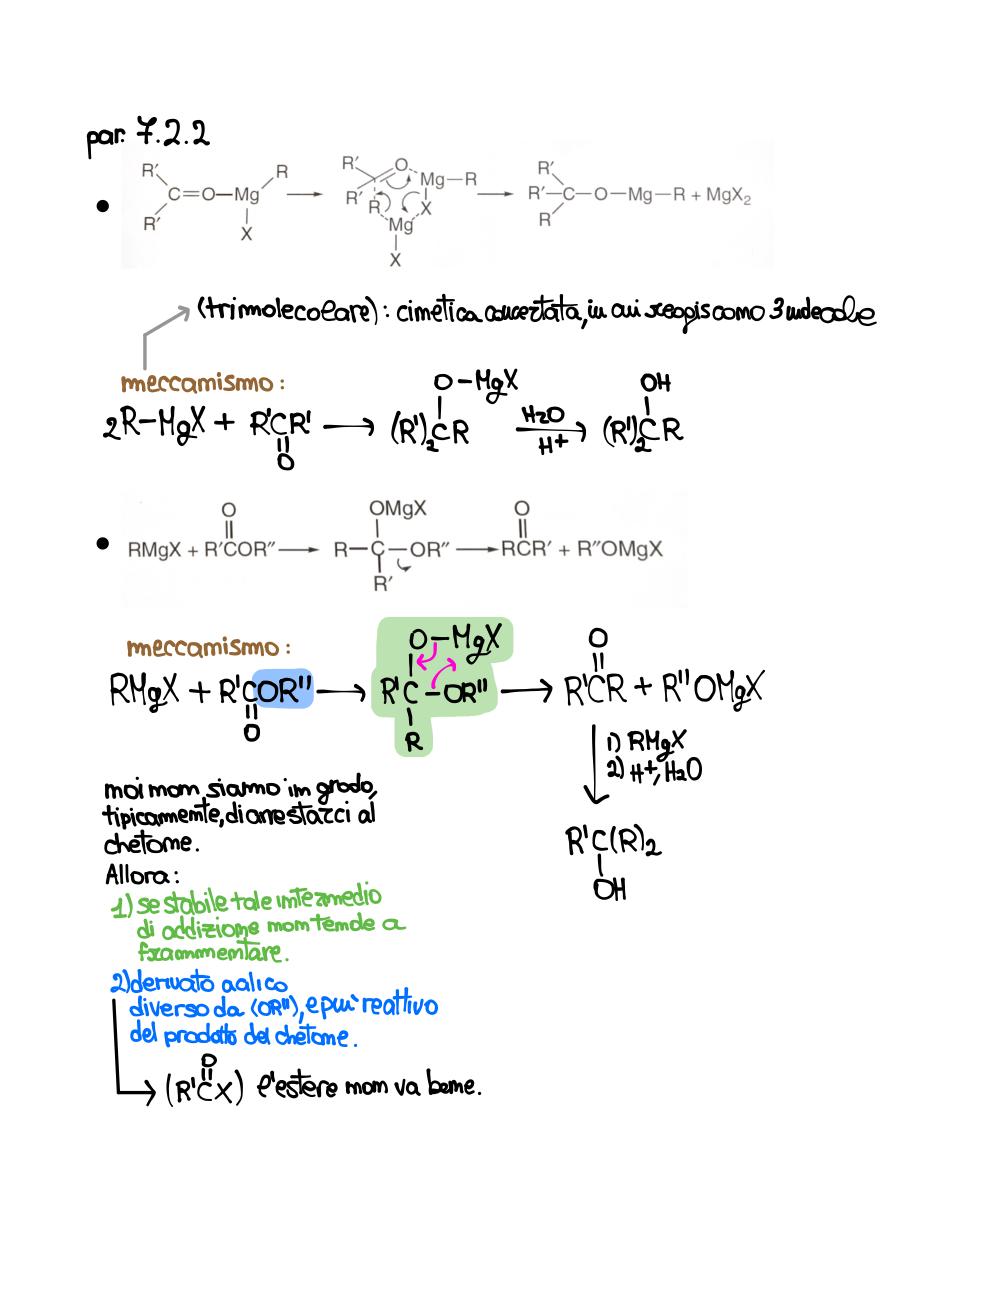 par. 7.2.2
R' R
C=O—Mg
R' X
R' O Mg—R
R' R X
Mg
X
R'
R'—C—O—Mg—R + MgX₂
R
(trimolecolare): cinetica concertata, in cui
meccanismo:
2R—MgX + R'CR' → (R')₂CR H₂O H⁺ → (R')₂CR
O O—MgX OH
O OMgX O
RMgX + R'COR'' → R—C—OR'' → RCR' + R''OMgX
R'
meccanismo:
O—MgX O
RMgX + R'COR'' → R'C—OR'' → R'CR + R''OMgX
O R
1) RMgX
2) H⁺, H₂O
R'C(R)₂
OH
noi non siamo in grado,
tipicamente, di arrestarci al
chetone.
Allora:
1) se stabile tale intermedio
di addizione non tende a
frammentare.
2) derivato acilico
diverso da (OR''), e più reattivo
del prodotto del chetone.
O
(R'CX) l'estere non va bene.